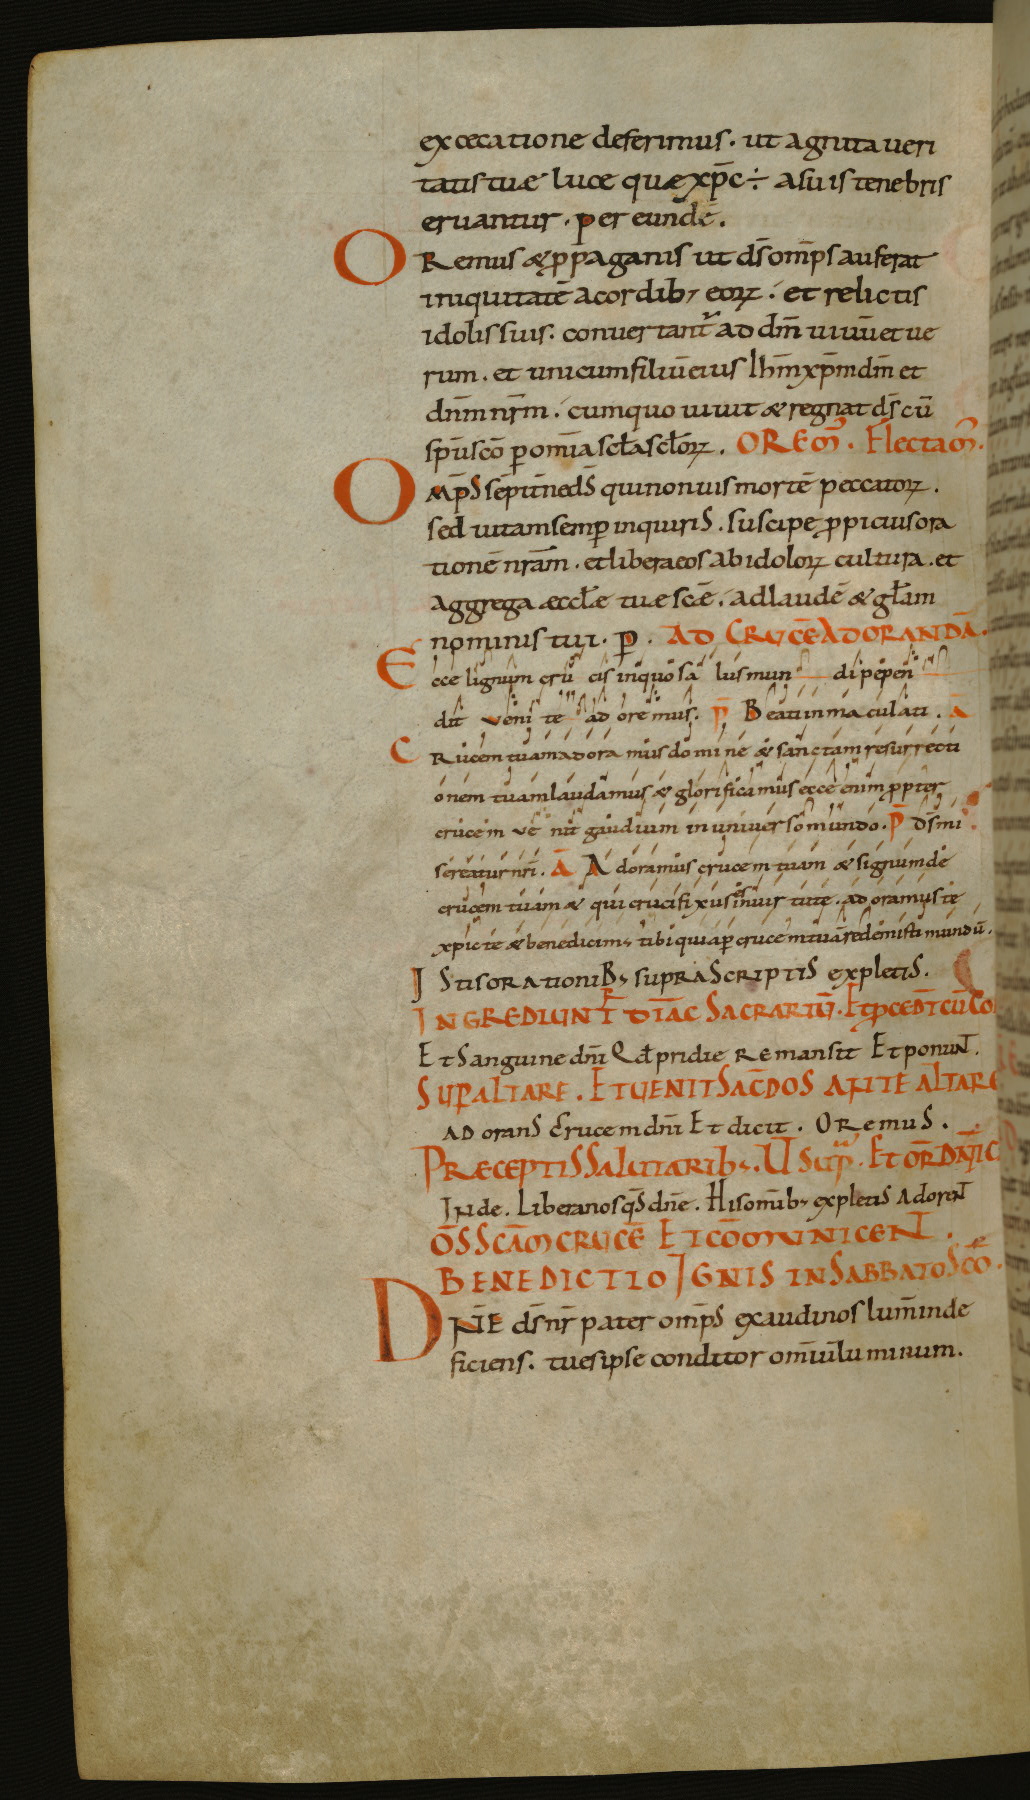 excęcatione deferimus. ut agnita ueri
tatis tuæ luce quæ xp̄c ÷ asuis tenebris
eruantur. per eundē.
ORemus & ꝓ paganis ut d̄s om̄ps auferat
iniquitatē acordib; eorꝝ. et relictis
idolis suis. conuertant̄ ad dm̄ uiuū et ue
rum. et unicum filiū eius Ihm̄ xpm̄ dm̄ et
dnm̄ nrm̄. cum quo uiuit & regnat d̄s cū
spū scō ꝑ omīa scła scłorꝝ. OREM̄. Flectam̄.
OMp̄S sempitn̄e dS̄ qui non uis mortē peccatorꝝ.
sed uitam semꝑ inquiriS. suscipe ꝓpicius ora
tionē nrām. et libera eos ab idolorꝝ cultura. et
aggrega æccłæ tuæ scǣ. ad laudē & gł̄am
nominis tui. ꝑ. AD CRUCĒ ADORANDĀ.
Ecce lignum cru cis in quo sa lus mun di pepen
dit veni te ad oremus. P̄ Beati inmaculati. Ā
CRucem tuam adora mus domine & sanctam resurrecti
onem tuam laudamus & glorificamus ecce enim ꝓpter
crucem ve nit gaudium in universo mundo. P̄ Ds̄ mi
sereatur nrī. Ā Adoramus crucem tuam & signum de
crucem tuam & qui crucifixus est in uirtute. adoramus te
xpīc te & benedicim; tibi quia ꝑ crucem tuā redemisti mundū.
IStis orationiB; supraScriptiS expletiS.
INGREDIUNT̄ DIĀC SACRARIŪ. Et ꝓCEDN̄T CŪ CO
Et Sanguine dnī Qđ pridie Remansit Et ponunt.
SUPER ALTARE. ET UENIT SAC̄DOS ANTE ALTARE
AD oranS Crucem dnī Et dicit. ORemuS.
PRECEPTIS SALUTARIB;. UT SUP̄. ET ORD DN̄IC
Inde. Libera nos qS̄ dnē. His omīb; expletiS Adorent
OM̄S SCĀM CRUCĒ ET COM̄UNICENT.
BENEDICTIO IGNIS IN SABBATO SCŌ.
DNĒ ds̄ nr̄ pater om̄pS exaudi nos lum̄ inde
ficiens. tu es ipse conditor omīu luminum.